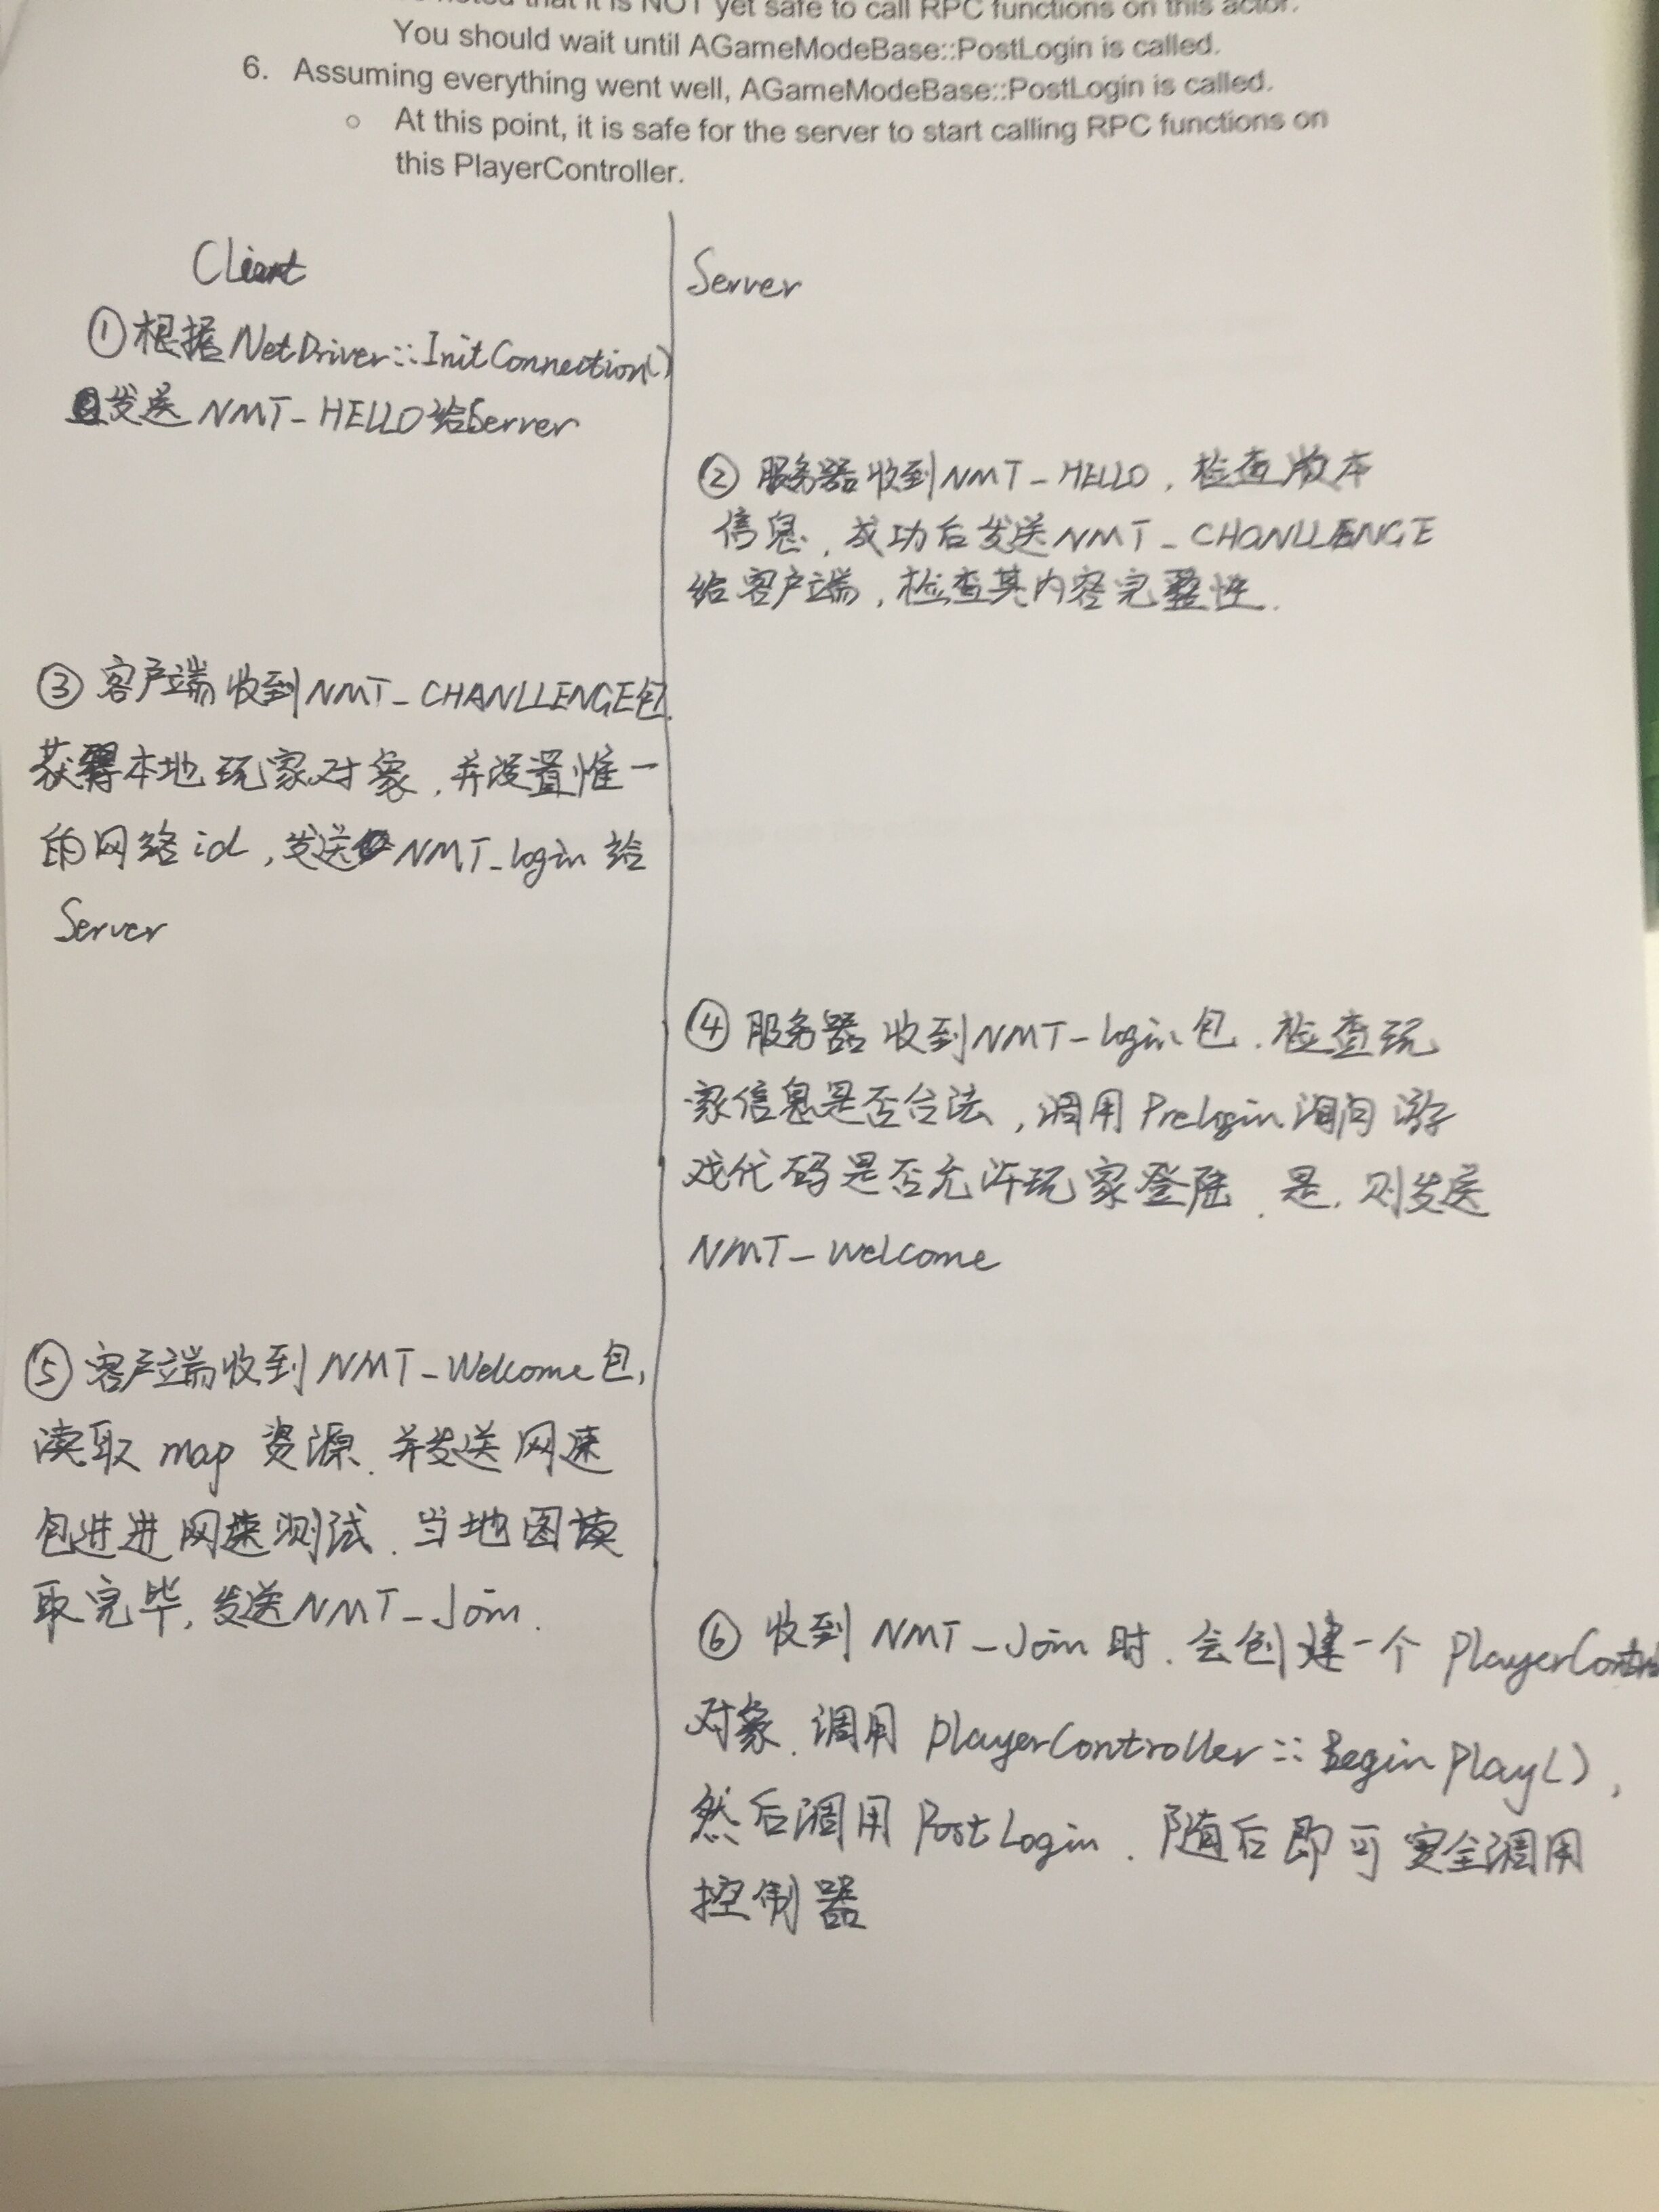 noted that it is NOT yet safe to call RPC functions on this actor.
You should wait until AGameModeBase::PostLogin is called.
6. Assuming everything went well, AGameModeBase::PostLogin is called.
○ At this point, it is safe for the server to start calling RPC functions on
this PlayerController.
Client
Server
①根据NetDriver::InitConnection()
发送 NMT_HELLO给Server
② 服务器收到NMT_HELLO, 检查版本
信息, 成功后发送NMT_CHANLLENGE
给客户端, 检查其内容完整性.
③ 客户端收到NMT_CHANLLENGE包.
获得本地玩家对象, 并设置惟一
的网络id, 发送NMT_login 给
Server
④ 服务器收到NMT_login包. 检查玩
家信息是否合法, 调用Prelogin询问游
戏代码是否允许玩家登陆. 是, 则发送
NMT_Welcome
⑤ 客户端收到NMT_Welcome包,
读取 map 资源. 并发送网速
包进进网速测试. 当地图读
取完毕, 发送NMT_Join.
⑥ 收到 NMT_Join 时. 会创建一个 PlayerContr
对象. 调用 playerController::BeginPlay(),
然后调用 PostLogin. 随后即可安全调用
控制器